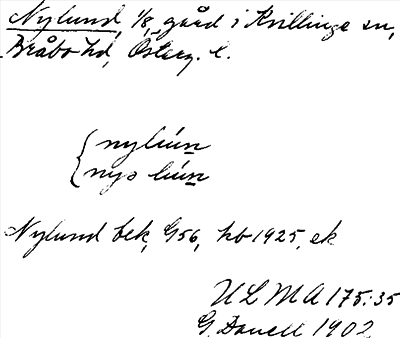 Nylund, 1/8, gård i Kvillinge sn,
Bråbo hd, Österg. l.
nylún
nyə lún
Nylund bek, G56, kb 1925, ek
ULMA 175:35
G. Danell 1902